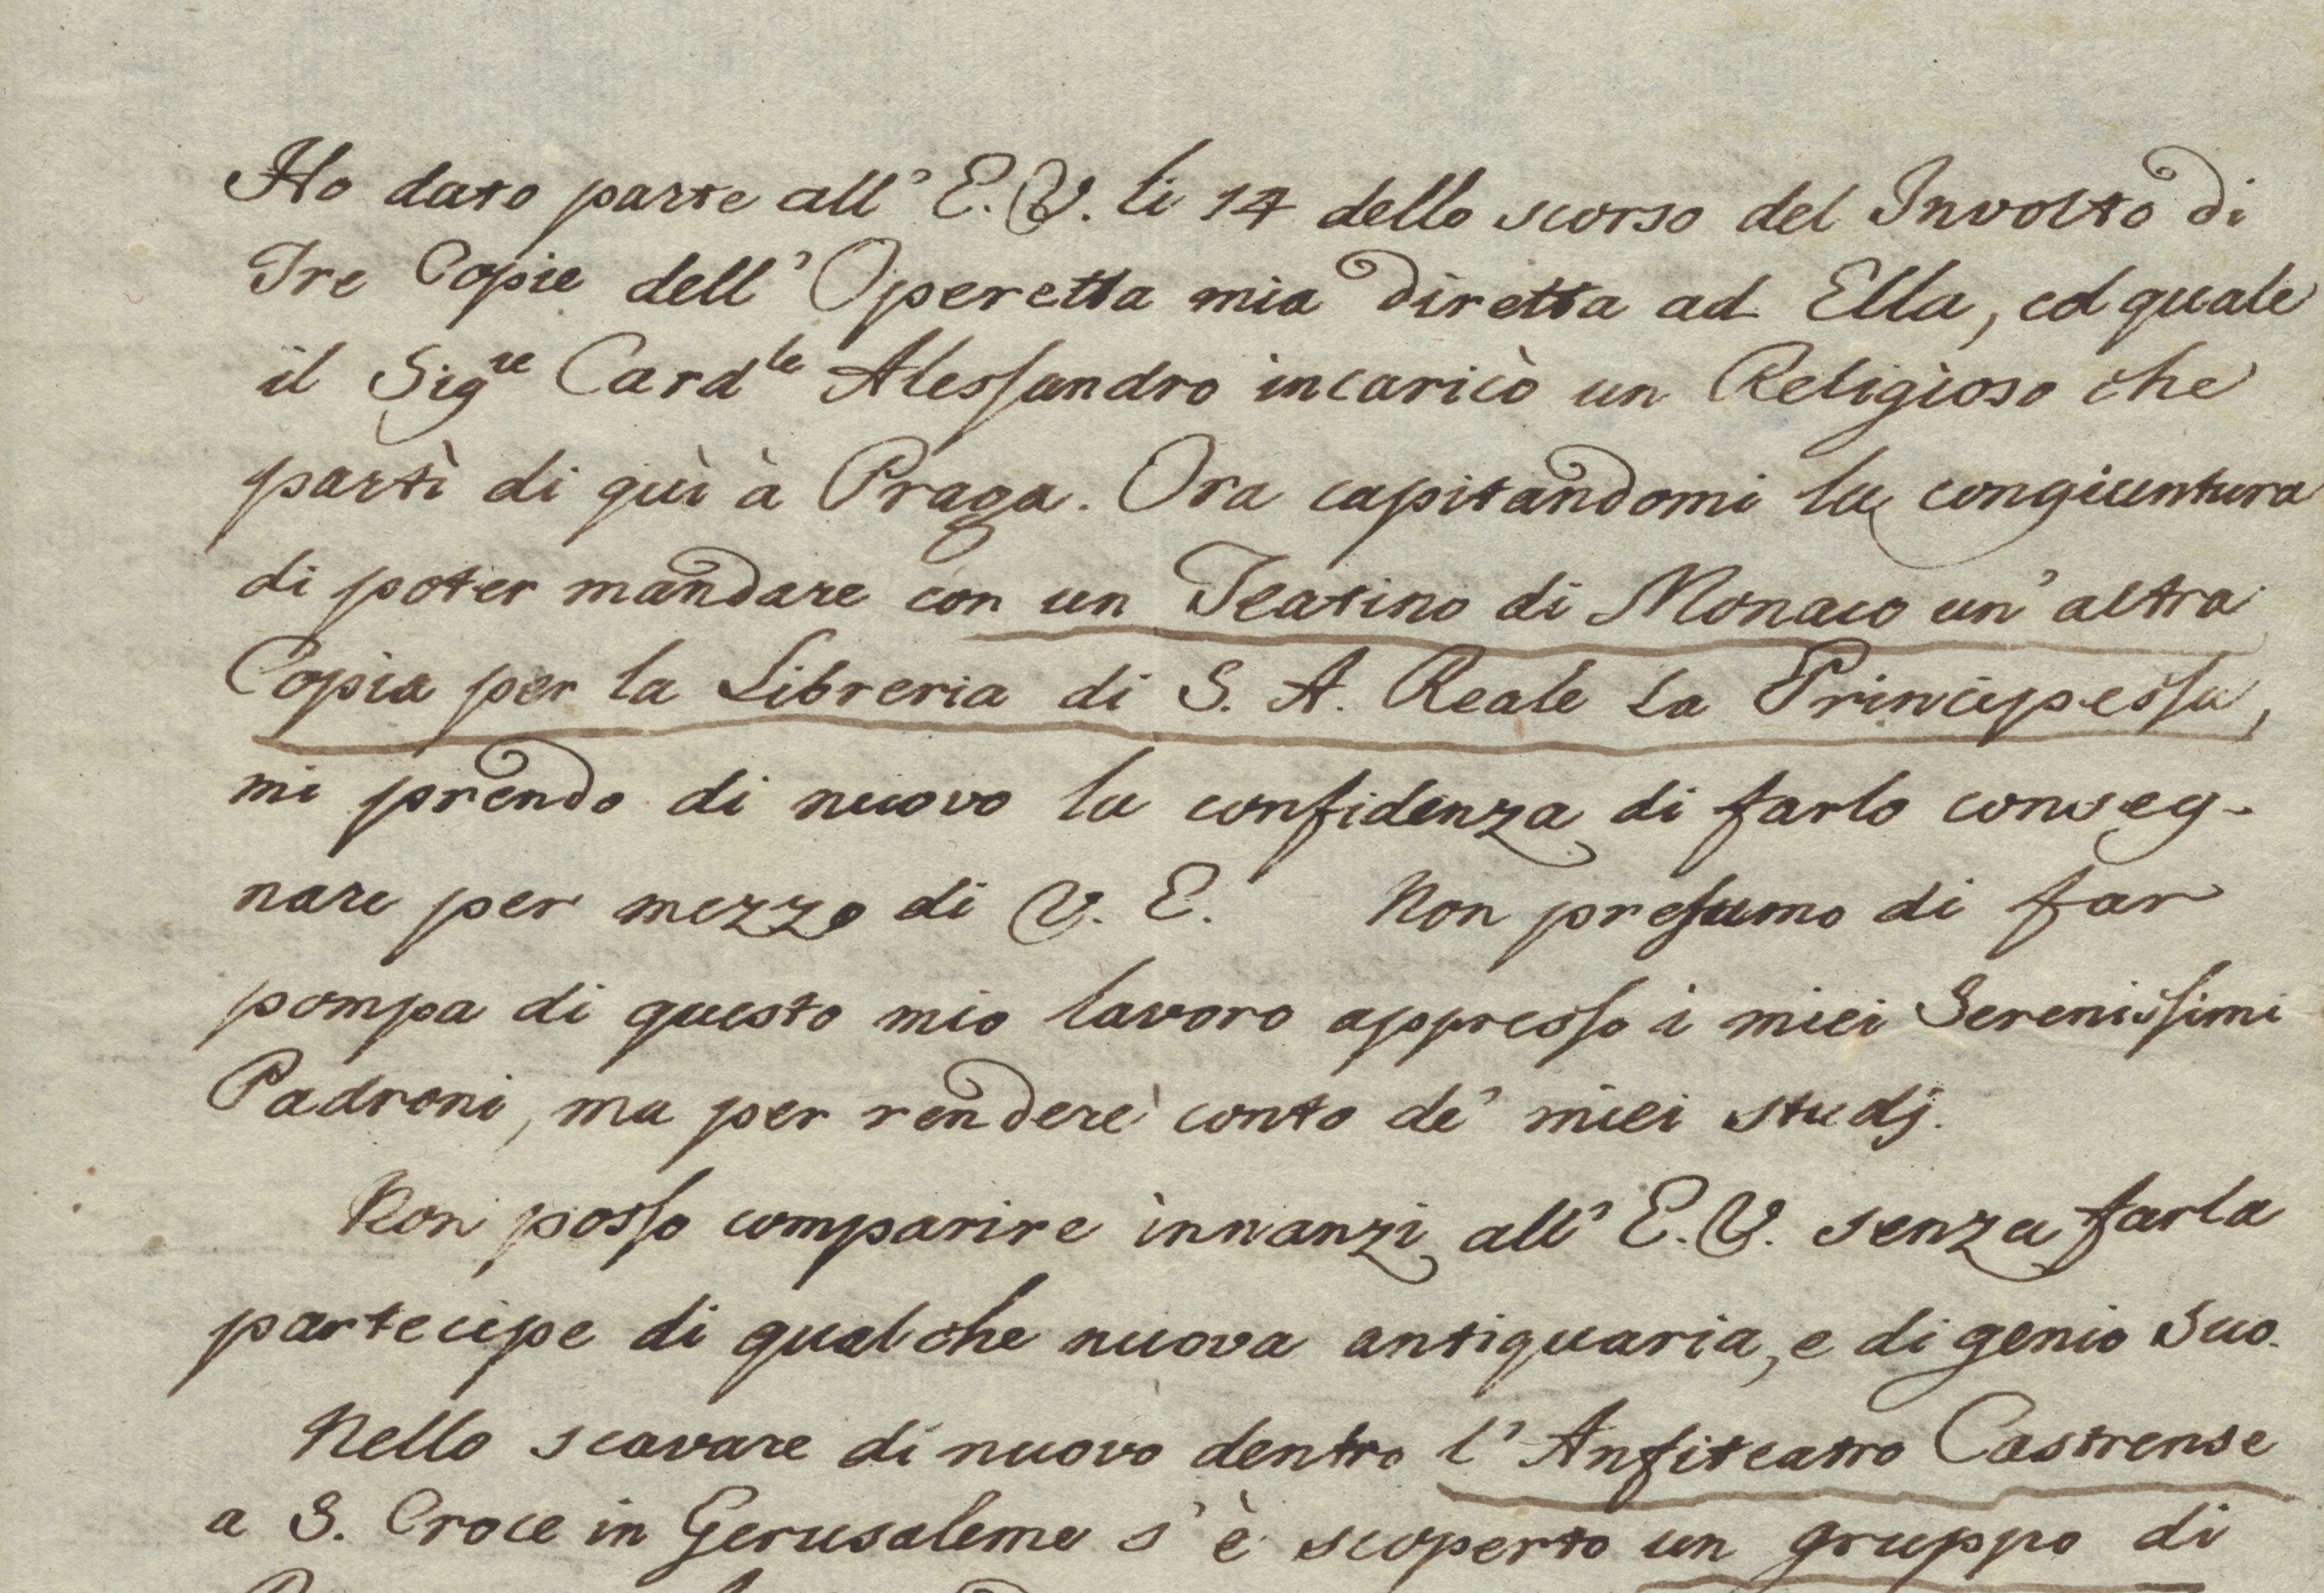 Ho dato parte all' E. V. li 14 dello scorso del Involto di
Tre Copie dell' Operetta mia diretta ad Ella, col quale
il Sigre Cardle Alessandro incaricò un Religioso che
partì di quì à Praga. Ora capitandomi la congiuntura
di poter mandare con un Teatino di Monaco un' altra
Copia per la Libreria di S. A. Reale la Principessa,
mi prendo di nuovo la confidenza di farlo conseg-
nare per mezzo di V. E. Non presumo di far
pompa di questo mio lavoro appresso i miei Serenissimi
Padroni, ma per rendere conto de' miei studj.
Non posso comparire innanzi all' E. V. senza farla
partecipe di qualche nuova antiquaria, e di genio Suo.
Nello scavare di nuovo dentro l' Anfiteatro Castrense
a S. Croce in Gerusaleme s' è scoperto un gruppo di